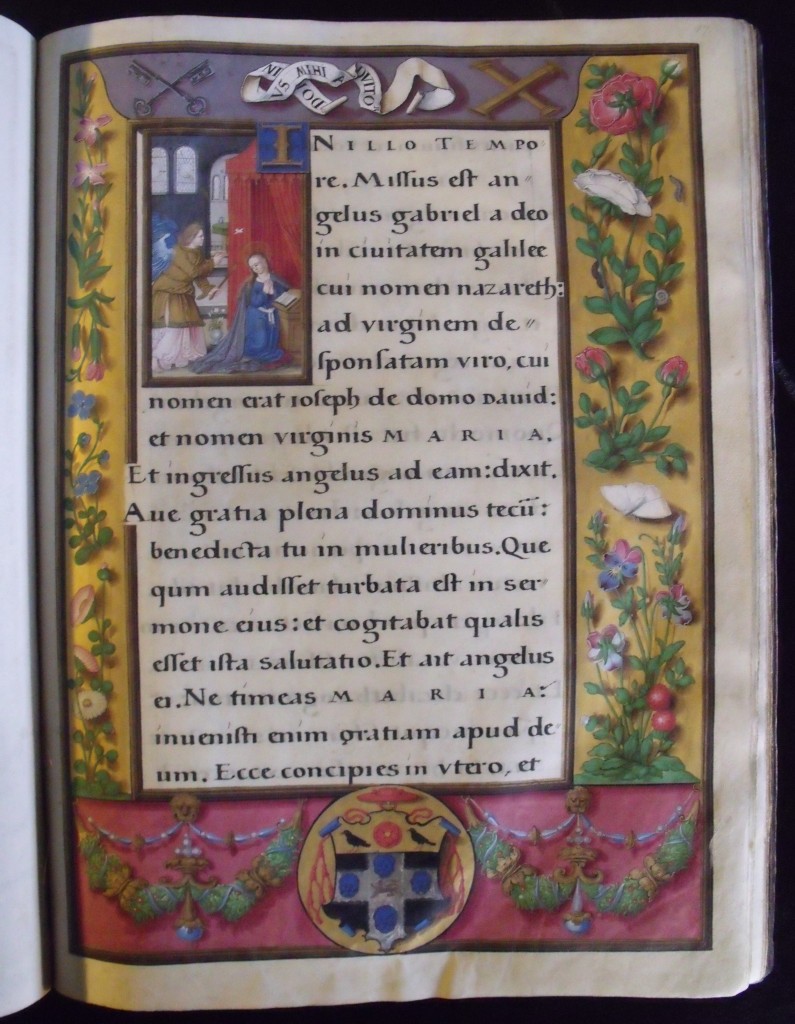 DO NI VS MIHI A IVTO
IN ILLO TEMPO
re. Miſſus eſt an
gelus gabriel a deo
in ciuitatem galilee
cui nomen nazareth:
ad virginem de〃
ſponſatam viro, cui
nomen erat ioſeph de domo Dauid:
et nomen virginis MARIA.
Et ingreſſus angelus ad eam: dixit.
Aue gratia plena dominus tecū:
benedicta tu in mulieribus. Que
qum audiſſet turbata eſt in ser
mone eius: et cogitabat qualis
eſſet iſta salutatio. Et ait angelus
ei. Ne timeas MARIA:
inueniſti enim gratiam apud de
um. Ecce concipies in vtero, et